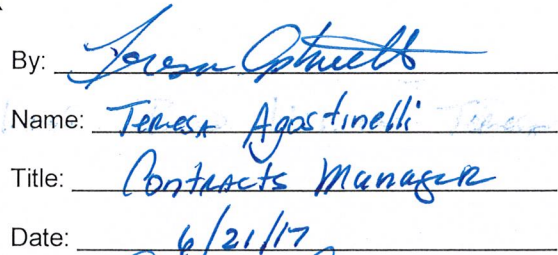 By: Teresa Agostinelli
Name: Teresa Agostinelli
Title: Contracts Manager
Date: 6/21/17